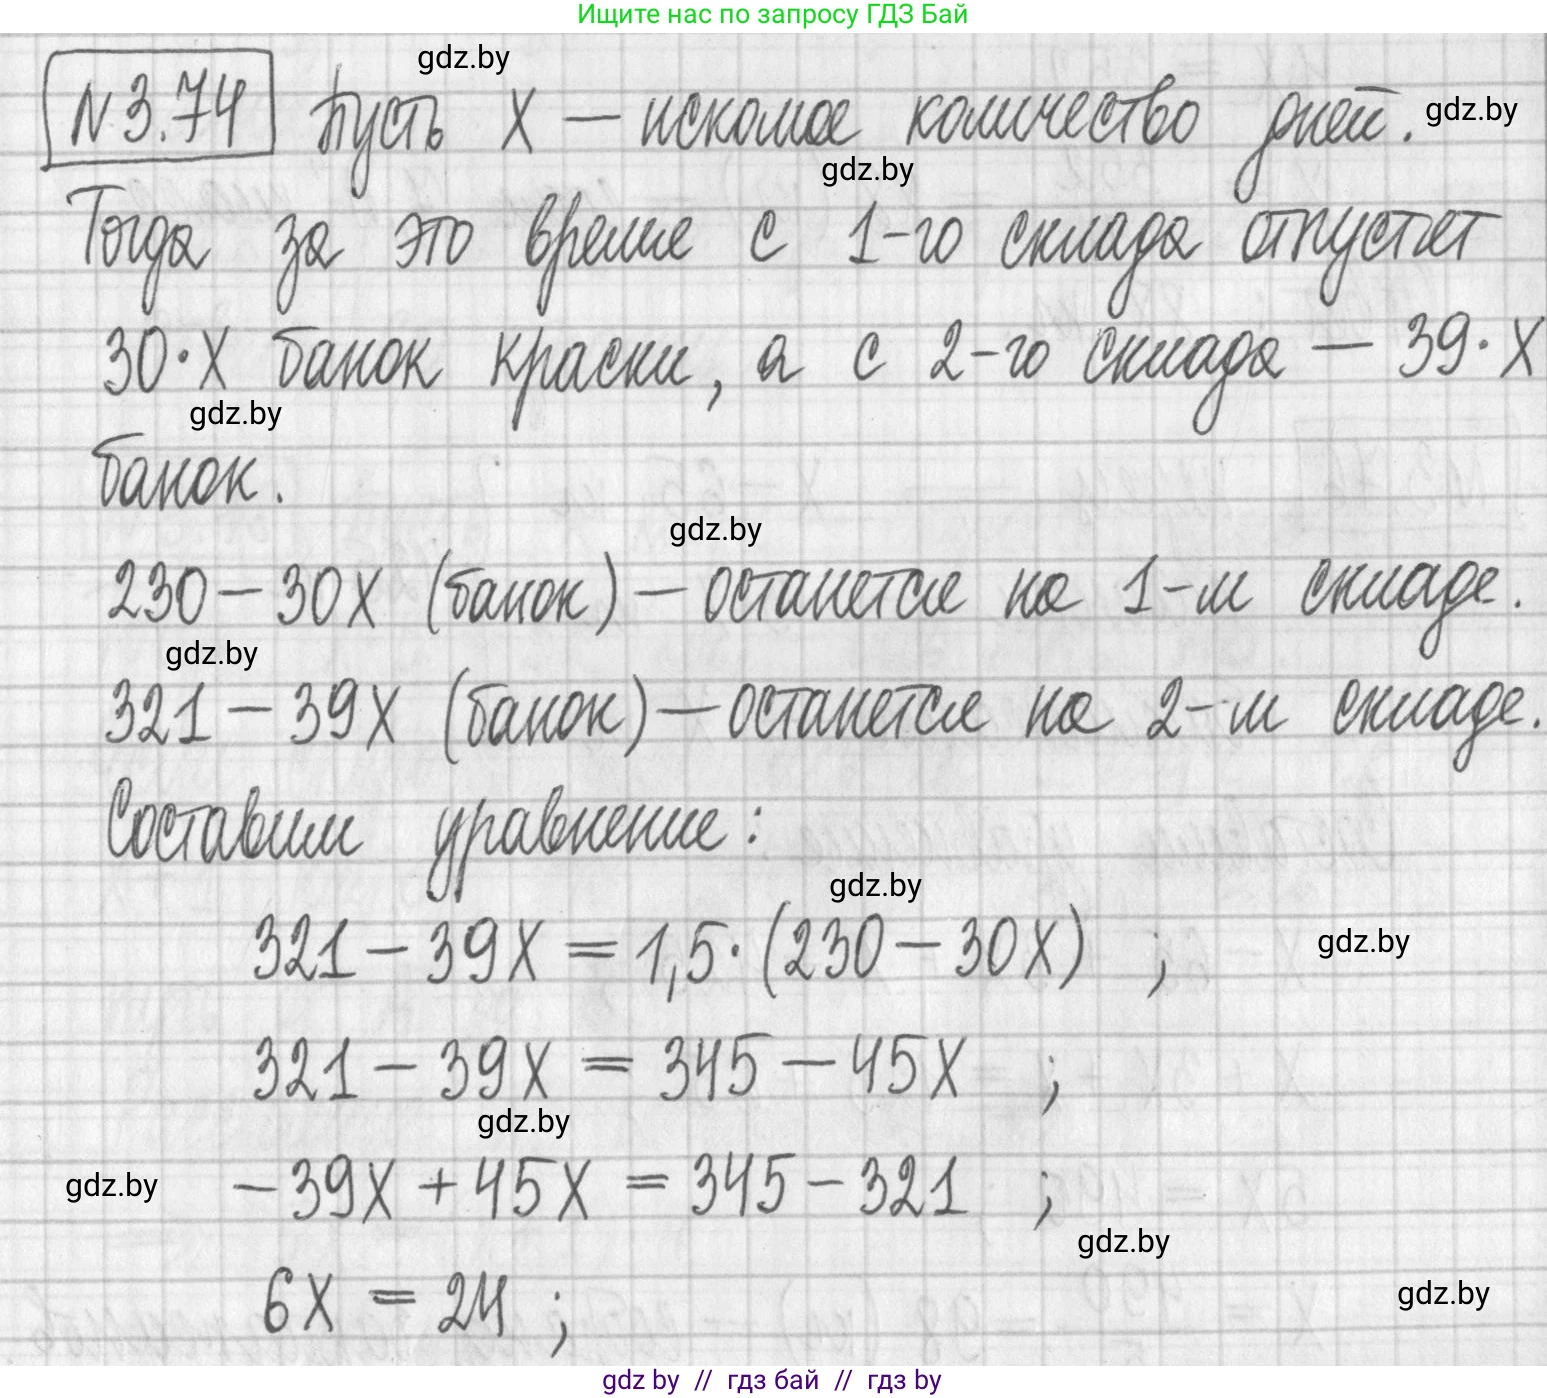 Ищите нас по запросу ГДЗ Бай
gdz.by
N 3.74 Пусть X — искомое количество дней. gdz.by
gdz.by
Тогда за это время с 1-го склада отпустят
30·X банок краски, а с 2-го склада — 39·X
gdz.by
банок.
gdz.by
230 – 30X (банок) — останется на 1-м складе.
gdz.by
321 – 39X (банок) — останется на 2-м складе.
Составим уравнение:
gdz.by
321 – 39X = 1,5·(230 – 30X) ; gdz.by
321 – 39X = 345 – 45X ;
gdz.by
gdz.by – 39X + 45X = 345 – 321 ;
gdz.by
6X = 24 ; gdz.by
gdz by // гдз бай // гдз by